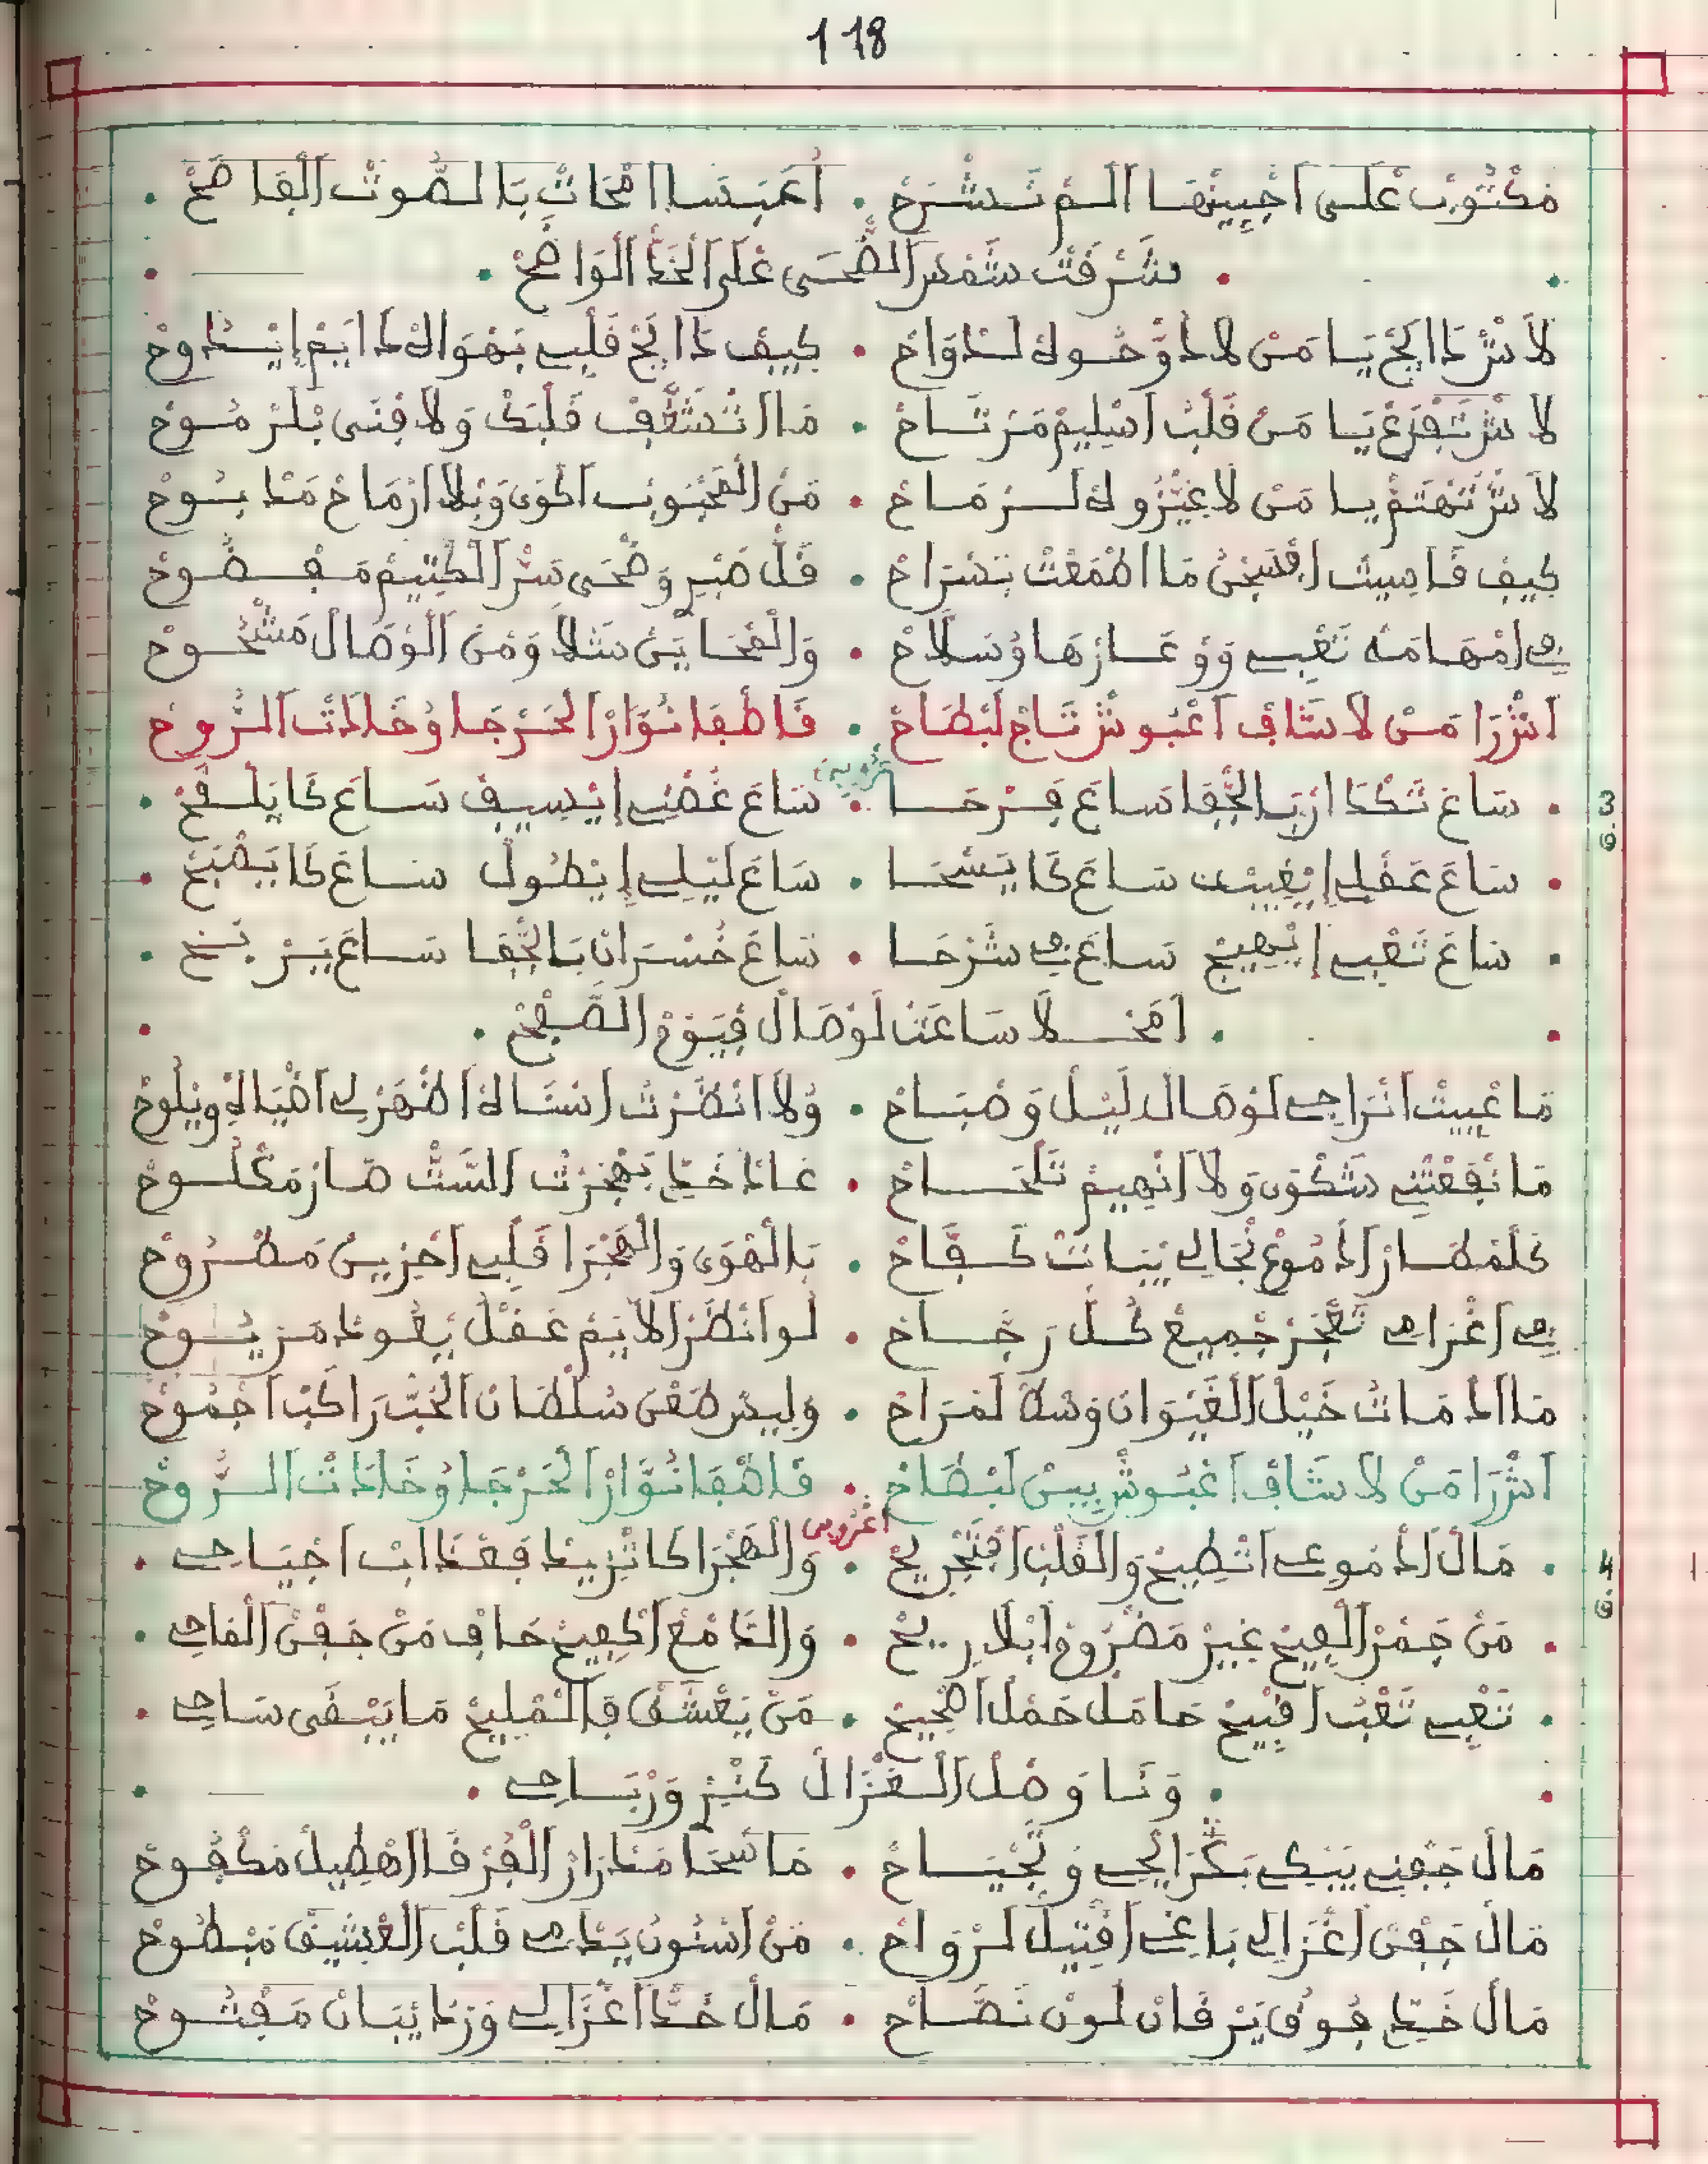 118
مَكْتُوبْ عْلَى اجْبِينْهَا الَمْ نَشْرَحْ . امْحَاتْ بَالصُّوتْ الْفَاضَحْ
شَرْقَتْ شَمْسْ الضّْحَى عْلَى الْخَدْ الْوَاضَحْ
لَاشْ يَا مَنْ لَا دَوّْخُوكْ لَدْوَاحْ . كِيفْ قَلْبِي بَهْوَاكْ دَايَمْ إِيْدُوحْ
لَاشْ تَفْزَعْ يَا مَنْ قَلْبْ اسْلِيمْ مَرْتَاحْ . مَا تَشْفَفْ قَلْبَكْ وَلَا فْنَى
لَاشْ تَهْتَمْ يَا مَنْ لَا غِيْرُوكْ لَرْمَاحْ . مَنْ الْمَحْبُوبْ اكْوَى وَبْلَا ارْمَاحْ
كِيفْ قَاسِيتْ مَا اطْمَعْتْ بَسْرَاحْ . قَلْ صَبْرِي وَضْحَى سَرّْ الْكْتِيمْ مَفْضُوحْ
فِي امْهَامَهْ تَعْبِي وَوْعَارْهَا وُسْلَاحْ . وَالْمْحَايَنْ شَلَّا وَمْنْ الْوْصَالْ مَشْحُوحْ
اشْ رَا مَنْ لَا شَافْ لَبْطَاحْ . قَاطْفَا نُوَّارْ الْحَرْجَا وُخَادَاتْ الرُّوحْ
3
سَاعَ نَكْدَا ارْبَ الْجّْفَا سَاعَ فَرْحَا . سَاعَ غُصْنِي إِيْسِيفْ سَاعَ كَا يَلْقَحْ
سَاعَ عَقْلِي إِيْغِيبْ سَاعَ كَا يَسْحَا . سَاعَ لَيْلِي إِيْطُولْ سَاعَ كَا يَصْبَحْ
سَاعَ تَعْبِي إِيْهِيجْ سَاعَ فِي شَرْحَا . سَاعَ خُسْرَانْ بَالْجّْفَا سَاعَ يَرْبَحْ
امْحْلَا سَاعَتْ لَوْصَالْ فْيَوْمْ الصّْفْحْ
مَا عْيِيتْ انْرَاجِي لَوْصَالْ لَيْلْ وَصْبَاحْ . وُلَا انْظَرْتْ اظْهَرْ لِي اخْيَالُ وِيْلُوحْ
مَا نَفْعَتْنِي شَكْوَى وَلَا انْهِيمْ تَلْحَاحْ . غَادْ خَدِّي بَهْجَرْتْ السَّتْ صَارْ مَكْلُوحْ
كَلَمْطَارْ ادْمُوعْ نْجَالِي بَاتَتْ كَفَّاحْ . بَالْهْوَى وَالْهَجْرَا قَلْبِي احْزِينْ مَطْرُوحْ
فِي اغْرَامِي تَعْجَزْ جْمِيعْ كُلْ رَجَّاحْ . لُو انْظَرْ الَايَمْ عَقْلُ يْعُودْ مَرْيُوحْ
مَا ادْمَاتْ خَيْلْ الْغَيْوَانْ وَسْطْ لَمْرَاحْ . وُلِيسْ طَعْنْ سُلْطَانْ الْحُبّْ رَاكَبْ اجْمُوحْ
اشْ رَا مَنْ لَا شَافْ بِينْ لَبْطَاحْ . قَاطْفَا نُوَّارْ الْحَرْجَا وُخَادَاتْ الرُّوحْ
4
مَالْ ادْمُوعِي اتْطِيحْ وَالْقَلْبْ افْتَجْرِيحْ . وَالْهَجْرَا كَا تْزِيدْ فَعْدَابْ اجْيَاحِي
مَنْ جَمْرْ الْفِيحْ غِيرْ مَضْرُومْ ابْلَا رِيحْ . وَالدَّمْعْ حَافْ مَنْ جَفْنْ الْمَاحِي
تَعْبِي تَعْبْ اقْبِيحْ حَامَلْ حَمْلْ . مَنْ يَعْشَقْ فَالْمْلِيحْ مَا يَبْقَى سَاحِي
وَنَا وَصْلْ الْغْزَالْ كَنْزِي وَرْبَاحِي
مَالْ جَفْنِي يَبْكِي وَتَجْيَاحْ . مَا سْحَا مَدْرَارْ الْفُرْقَا الهْطِيلْ مَكْفُوحْ
مَالْ جَفْنْ اغْزَالِي بَاغِي اقْتِيلْ لَرْوَاحْ . مَنْ قَلْبْ الْعْشِيقْ مَبْطُوحْ
مَالْ خَدِّي فُوقْ يَرْقَانْ لُونْ نَضَّاحْ . مَالْ خَدّْ اغْزَالِي وَرْدْ يْبَانْ مَفْتُوحْ